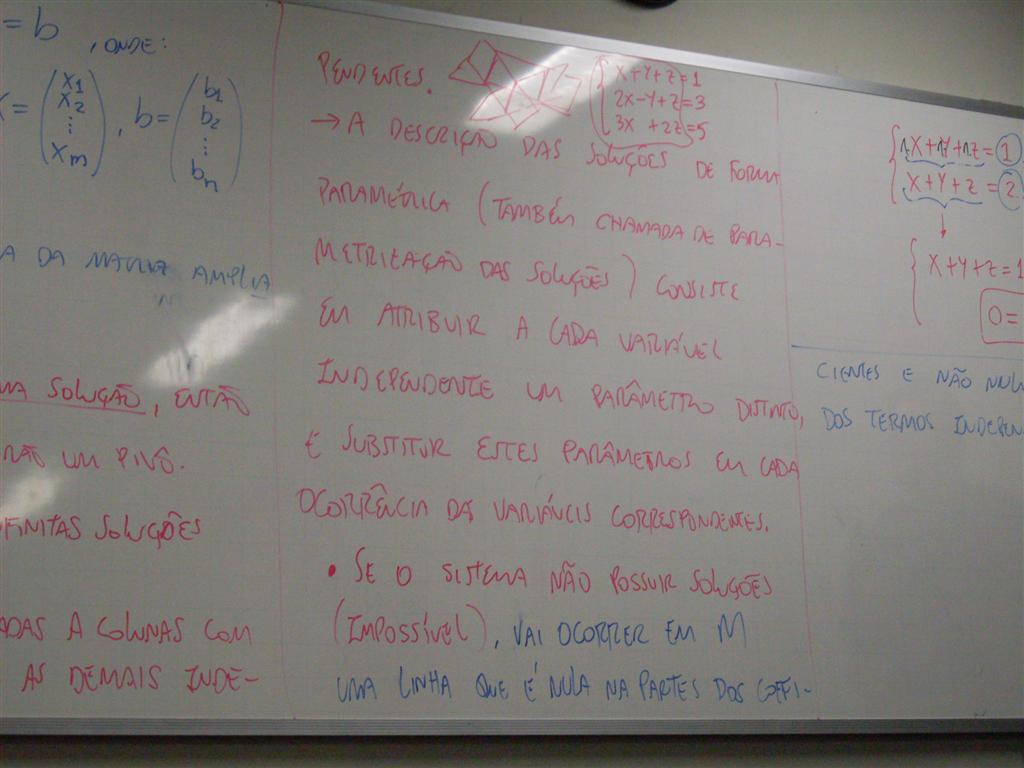 = b , ONDE:
X = (x1 x2 ⋮ xm) , b = (b1 b2 ⋮ bn)
A DA MATRIZ AMPLIA
MA SOLUÇÃO, ENTÃO
RÃO UM PIVÔ.
FINITAS SOLUÇÕES
ADAS A COLUNAS COM
AS DEMAIS INDE-
PENDENTES.
X+Y+Z=1
2X-Y+Z=3
3X +2Z=5
→ A DESCRIÇÃO DAS SOLUÇÕES DE FORMA
PARAMÉTRICA (TAMBÉM CHAMADA DE PARA-
METRIZAÇÃO DAS SOLUÇÕES) CONSISTE
EM ATRIBUIR A CADA VARIÁVEL
INDEPENDENTE UM PARÂMETRO DISTINTO,
E SUBSTITUIR ESTES PARÂMETROS EM CADA
OCORRÊNCIA DAS VARIÁVEIS CORRESPONDENTES.
• SE O SISTEMA NÃO POSSUIR SOLUÇÕES
(IMPOSSÍVEL), VAI OCORRER EM M
UMA LINHA QUE É NULA NA PARTES DOS COEFI-
1X+1Y+1Z=1
X+Y+Z=2
X+Y+Z=1
0=
CIENTES E NÃO NULA
DOS TERMOS INDEPEN